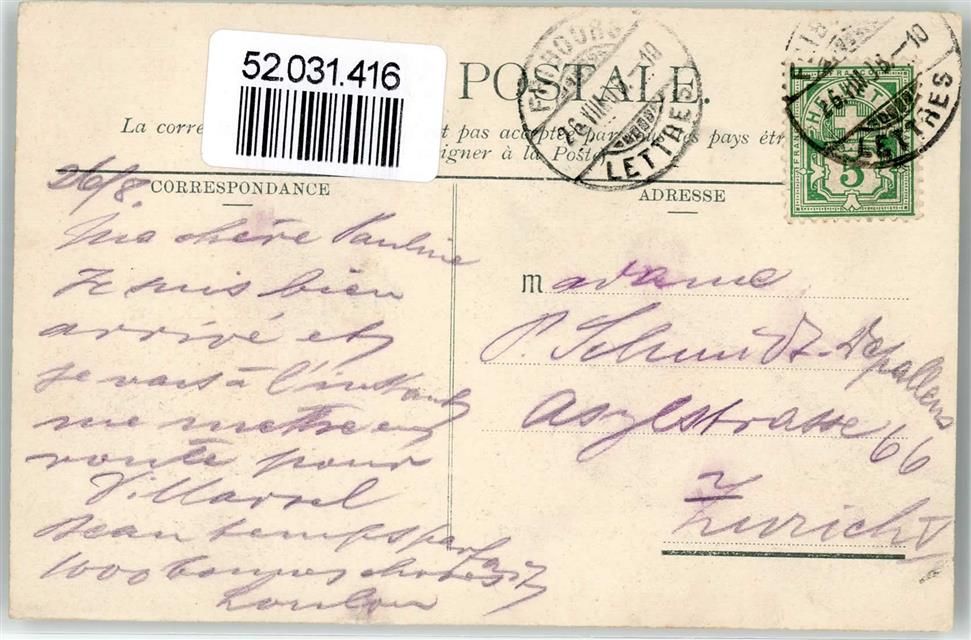 52.031.416
POSTALE.
La corre t pas acceptée par les pays étr
igner à la Poste
FRIBOURG
26.VIII.06.-10
LETTRES
FRIB
26.VIII.06.-10
LETTRES
FRANCO
5
CORRESPONDANCE
ADRESSE
26/8.
Ma chère Pauline
Je suis bien
arrivé et
je vais à l'instant
me mettre en
route pour
Villarsel
beau temps parfait
1000 bonnes choses
Loulou
Madame
P. Schmidt-Depallens
Asylstrasse 66
Zurich V